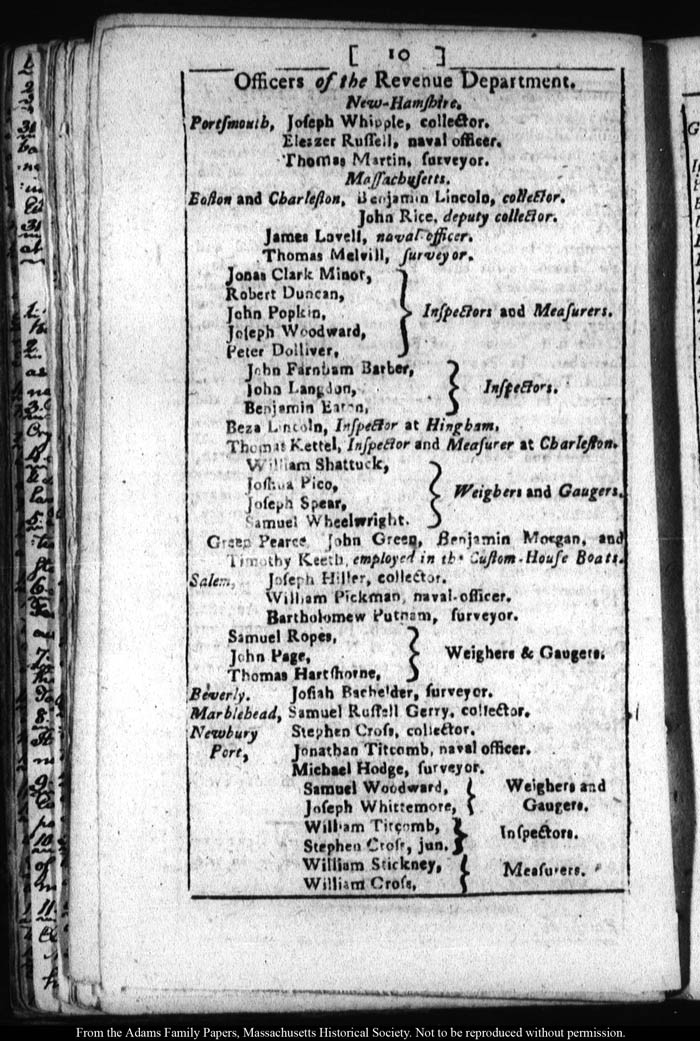 [ 10 ]
Officers of the Revenue Department.
New-Hamſhire.
Portſmouth, Joſeph Whipple, collector.
Eleazer Ruſſell, naval officer.
Thomas Martin, ſurveyor.
Maſſachuſetts.
Boſton and Charleſton, Benjamin Lincoln, collector.
John Rice, deputy collector.
James Lovell, naval-officer.
Thomas Melvill, ſurveyor.
Jonas Clark Minot,
Robert Duncan,
John Popkin, } Inſpectors and Meaſurers.
Joſeph Woodward,
Peter Dolliver,
John Farnham Barber,
John Langdon, } Inſpectors.
Benjamin Eaton,
Beza Lincoln, Inſpector at Hingham.
Thomas Kettel, Inſpector and Meaſurer at Charleſton.
William Shattuck,
Joſhua Pico, } Weighers and Gaugers.
Joſeph Spear,
Samuel Wheelwright.
Green Pearce, John Green, Benjamin Morgan, and
Timothy Keeth, employed in the Cuſtom-Houſe Boats.
Salem, Joſeph Hiller, collector.
William Pickman, naval-officer.
Bartholomew Putnam, ſurveyor.
Samuel Ropes,
John Page, } Weighers & Gaugers.
Thomas Hartſhorne,
Beverly. Joſiah Bachelder, ſurveyor.
Marblehead, Samuel Ruſſell Gerry, collector.
Newbury Stephen Croſs, collector.
Port, Jonathan Titcomb, naval officer.
Michael Hodge, ſurveyor.
Samuel Woodward, { Weighers and
Joſeph Whittemore, Gaugers.
William Titcomb, } Inſpectors.
Stephen Croſs, jun.
William Stickney, { Meaſurers.
William Croſs,
From the Adams Family Papers, Massachusetts Historical Society. Not to be reproduced without permission.